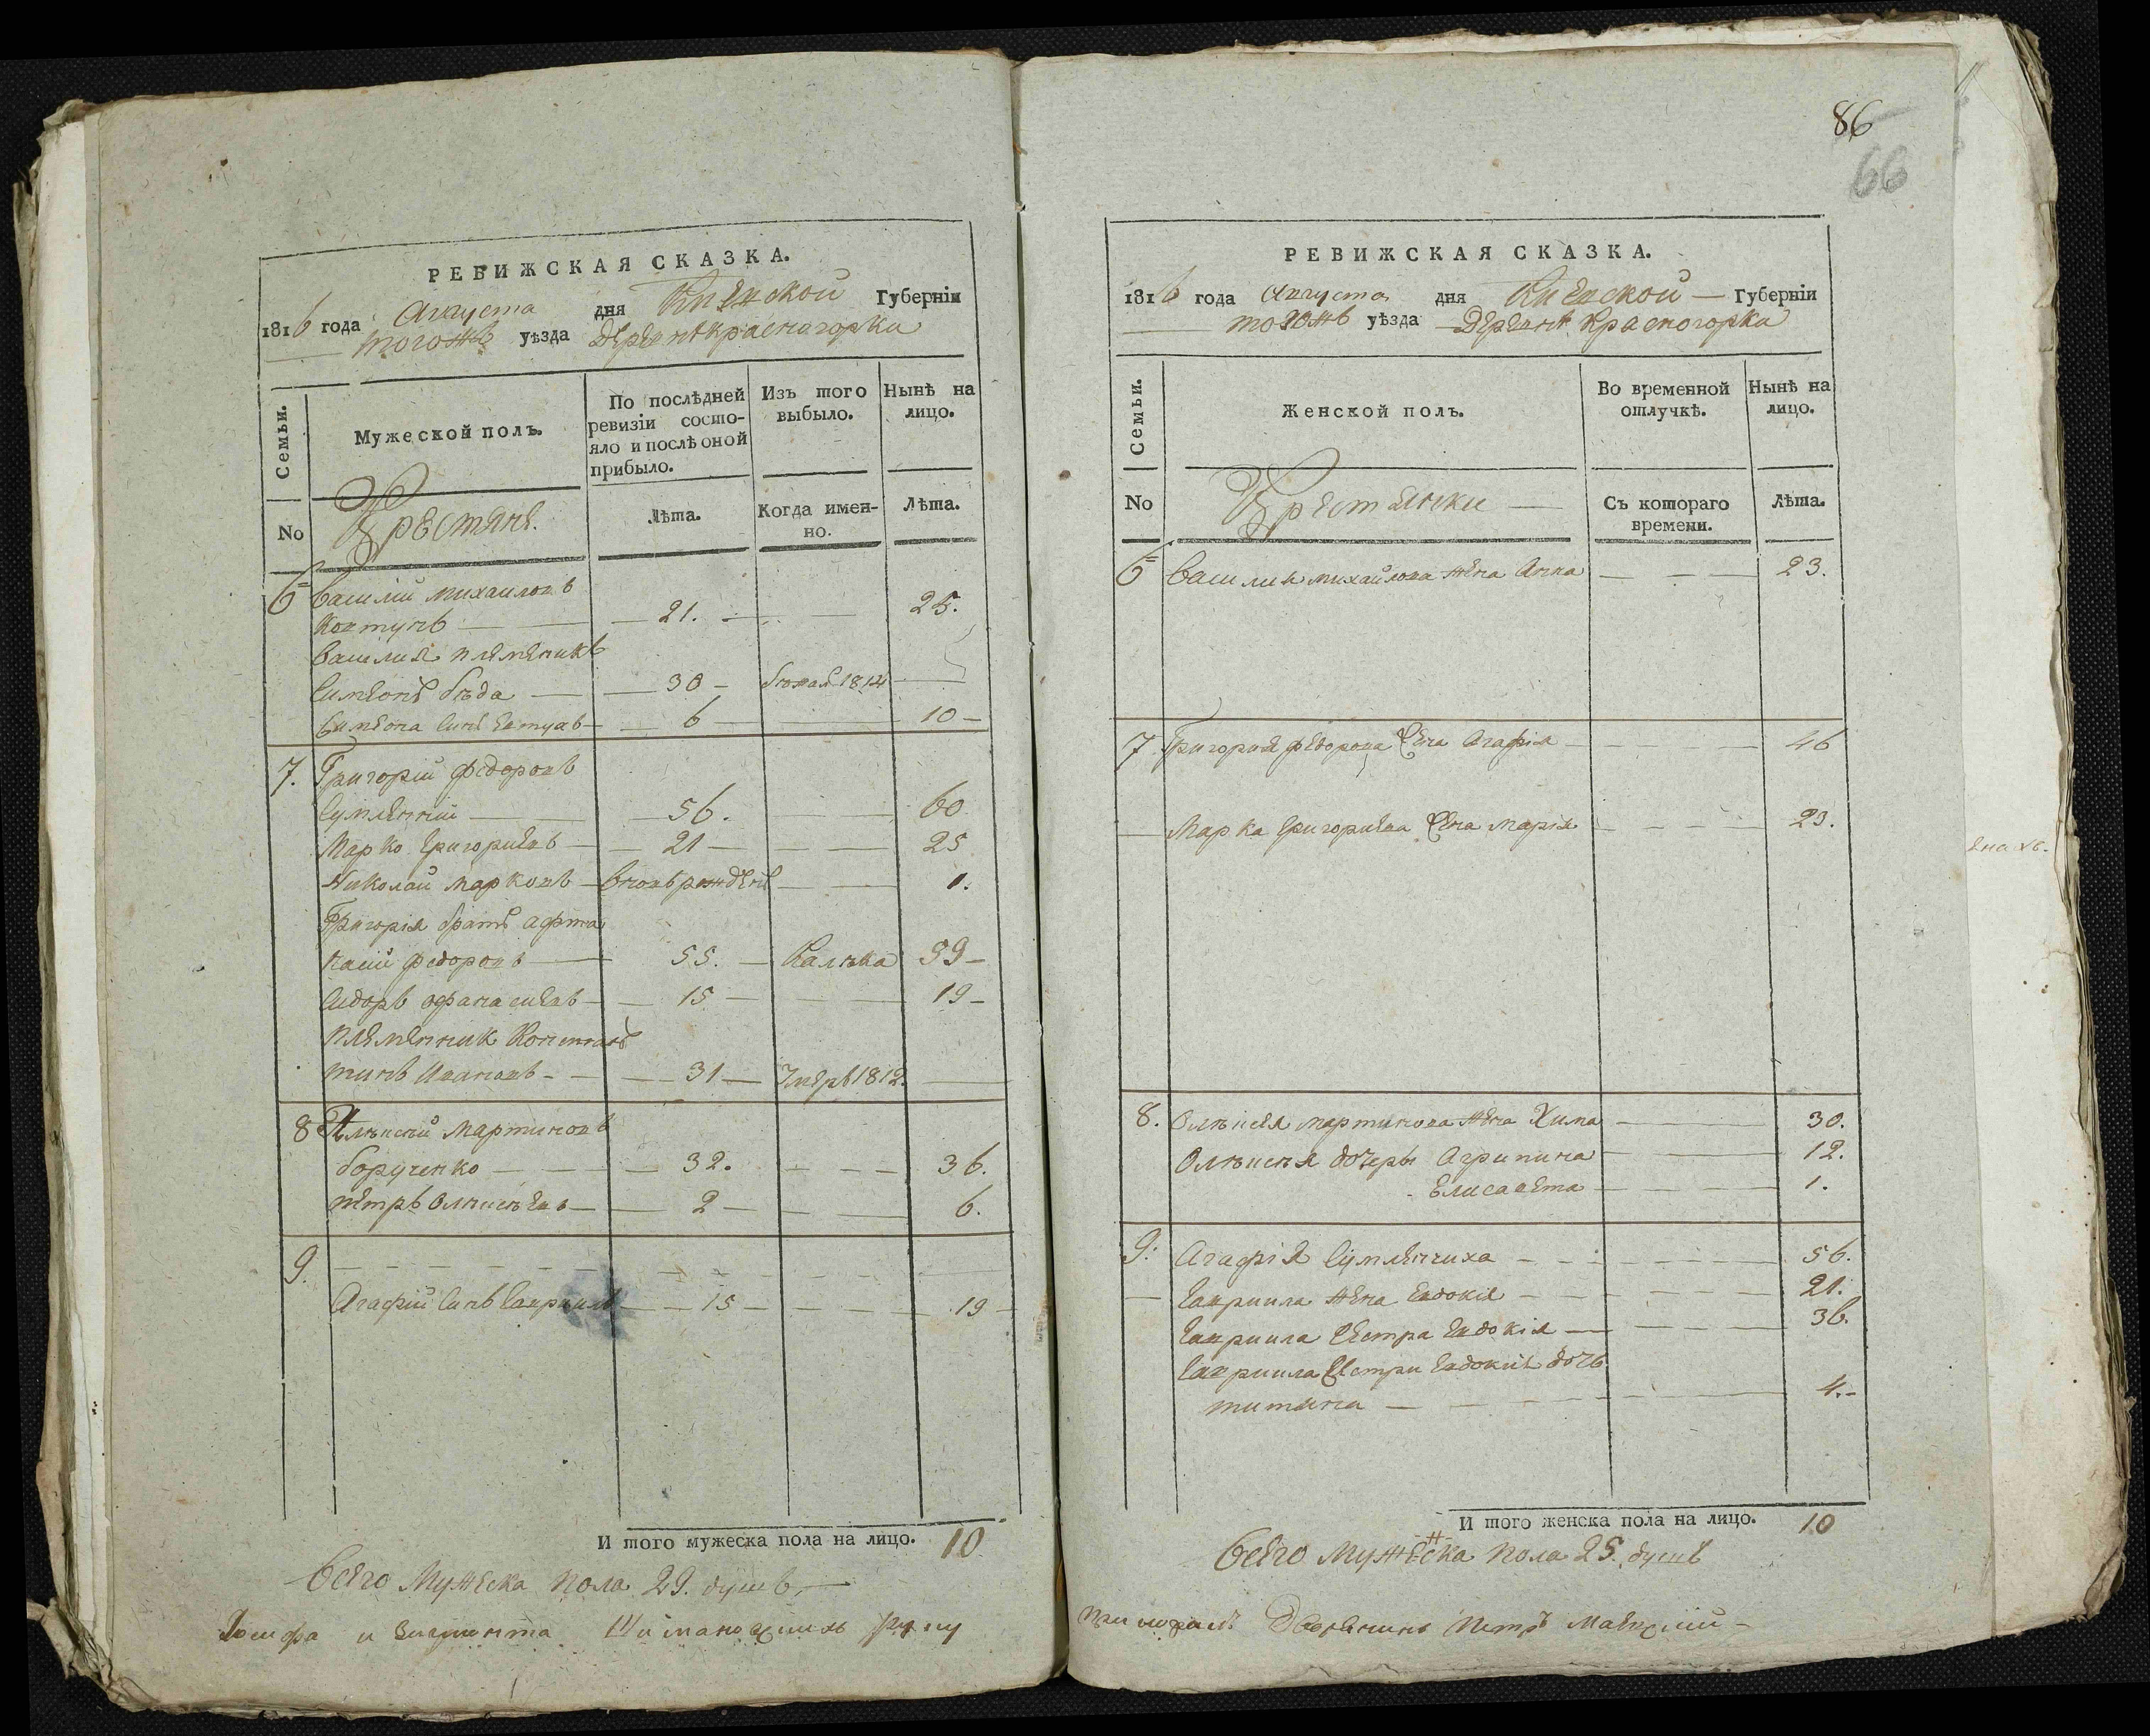 РЕВИЖСКАЯ СКАЗКА.
1816 года Августа дня Киевской Губерніи
тогожъ уѣзда Деревнѣ Красногорка
Семьи.
Мужеской полъ.
По послѣдней ревизіи состо-
яло и послѣ оной
прибыло.
Изъ того
выбыло.
Нынѣ на
лицо.
No
Крестяне.
Лѣта.
Когда имен-
но.
Лѣта.
6 Василій Михаиловъ
Ковтунъ — 21. — 25.
Василия племеникъ
Симеонъ — 30 — 1814 —
Симеона синъ — 6 — 10 —
7. Григорій Федоровъ
Сумленній — 56. — 60
Марко Григориевъ — 21 — 25
Николай Марковъ — вновь рожденъ — 1.
Григорія братъ Афта
насій Федоровъ — 55. — Калѣка 59 —
Сидоръ Афанасиевъ — 15 — 19 —
Племенник Констан
тинъ Ивановъ — 31 — Умеръ 1812. —
8 Алѣксѣй Мартиновъ
Борученко — 32. — 36.
Петръ Олѣксѣевъ — 2 — 6.
9.
Агафій синъ Гавриилъ — 15 — 19 —
И того мужеска пола на лицо. 10
Всего Мужеска пола 29. душъ. —
Іосифа и
86
66
РЕВИЖСКАЯ СКАЗКА.
1816 года Августа дня Киевской — Губерніи
тогожъ уѣзда Деревнѣ Красногорка
Семьи.
Женской полъ.
Во временной
отлучкѣ.
Нынѣ на
лицо.
No
Крестянки —
Съ котораго
времени.
Лѣта.
6 Василия Михайлова жена Анна — 23.
7. Григория Федорова жена Агафія — 46
— Марка Григориева жена Марія — 23.
8. Олѣксея Мартинова жена Хима — 30.
Олѣксѣя дочеры Агрипина — 12.
Елисавета — 1.
9. Агафія Сумленчиха — 56.
— Гавриила жена Евдокія — 21.
Гавриила сестра Евдокія — 36.
Гавриила сестри Евдокиї дочь
— 4. —
И того женска пола на лицо. 10
Всего Мужеска пола 25. душъ
Дворянинъ Петръ